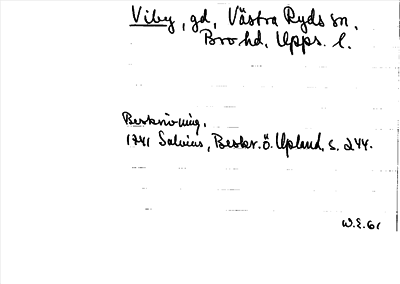 Viby, gd, Västra Ryds sn.
Bro hd. Upps. l.
Beskrivning.
1741 Salvius, Beskr. ö. Upland, s. 244.
W.E. 61